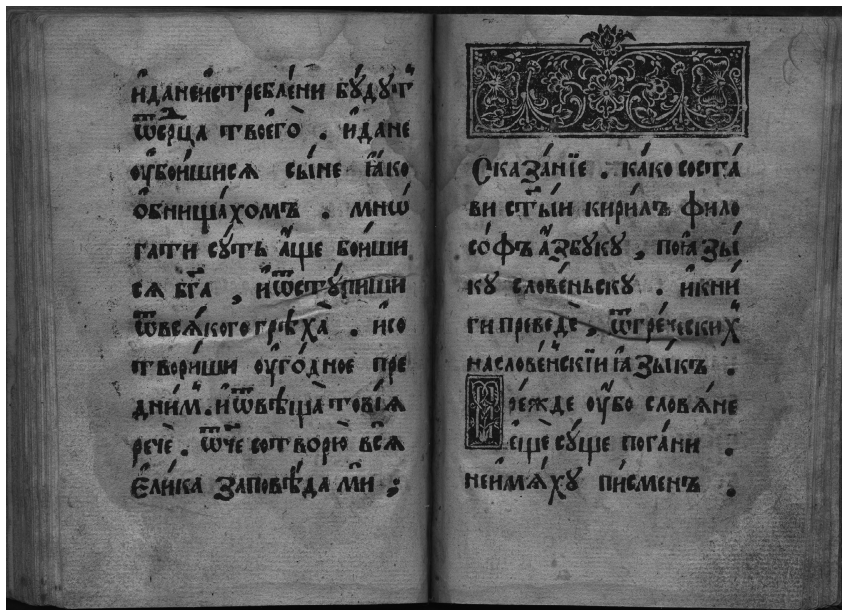 и҆данеи҆стребле́ни бꙋ́дꙋтъ
ѿсрца твоегѡ̀ . и҆дане
ᲂу҆бои́шисѧ сы́не ꙗ҆́ко
ѻ҆бнища́хомъ . мнѡ́
гати сꙋ́ть а҆́ще бои́ши
сѧ бг҃а , и҆ѿстꙋ́пиши
ѿвсѧ́кого грѣха̀ . и҆со
твори́ши ᲂу҆го́дное пре
дни́м . и҆ѿвѣща̀ тові́ѧ
речѐ . ѿ҆че сотворю̀ всѧ̑
є҆ли́ка заповѣ́да ми ;
Сказа́нїе . ка́ко соста́
ви ст҃ы́и кири́лъ фило
со́фъ а҆́збꙋкꙋ , поꙗ҆зы́
кꙋ слове́ньскꙋ . и҆кни́
ги преведѐ , ѿгре́ческих
наслове́нскїи ꙗ҆зы́къ .
Пре́жде ᲂу҆́бо словѧ́не
є҆щѐ сꙋ́ще пога́ни .
неи҆мѧ́хꙋ пи́сменъ .